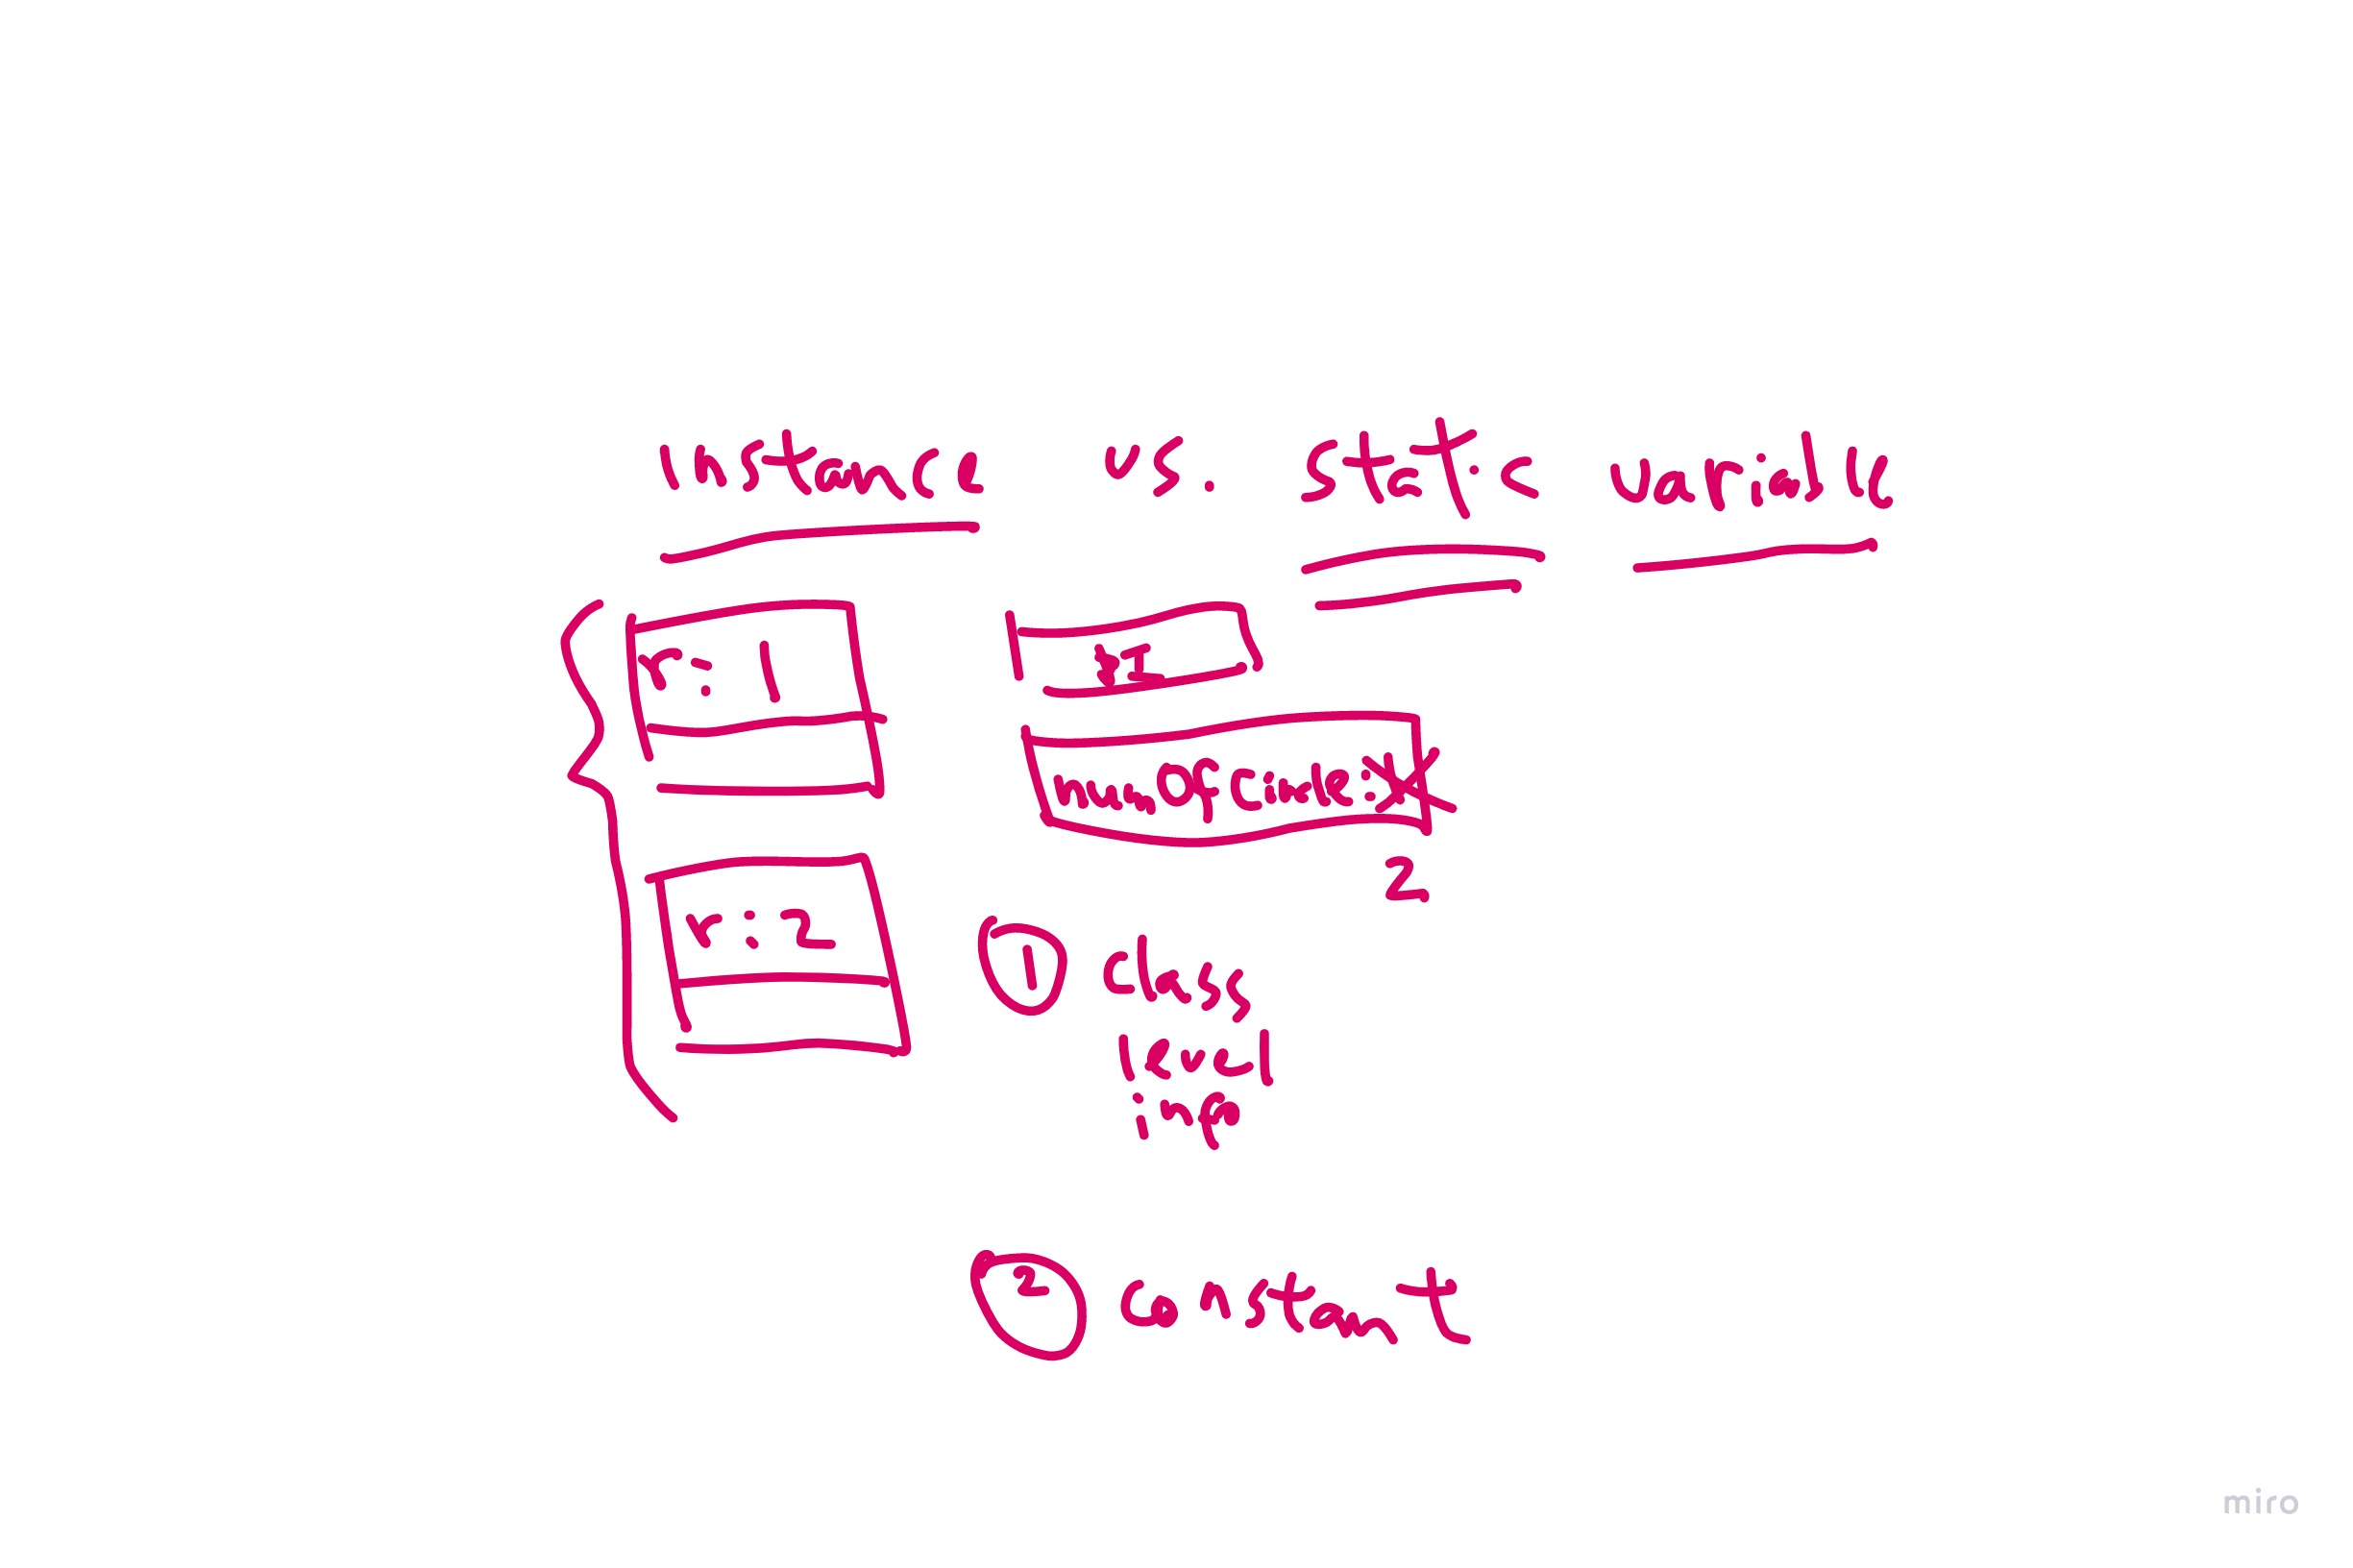 Instance vs. static variable
r: 1
PI
numOfCircle: 1
2
r: 2
1 class
level
info
2 constant
miro